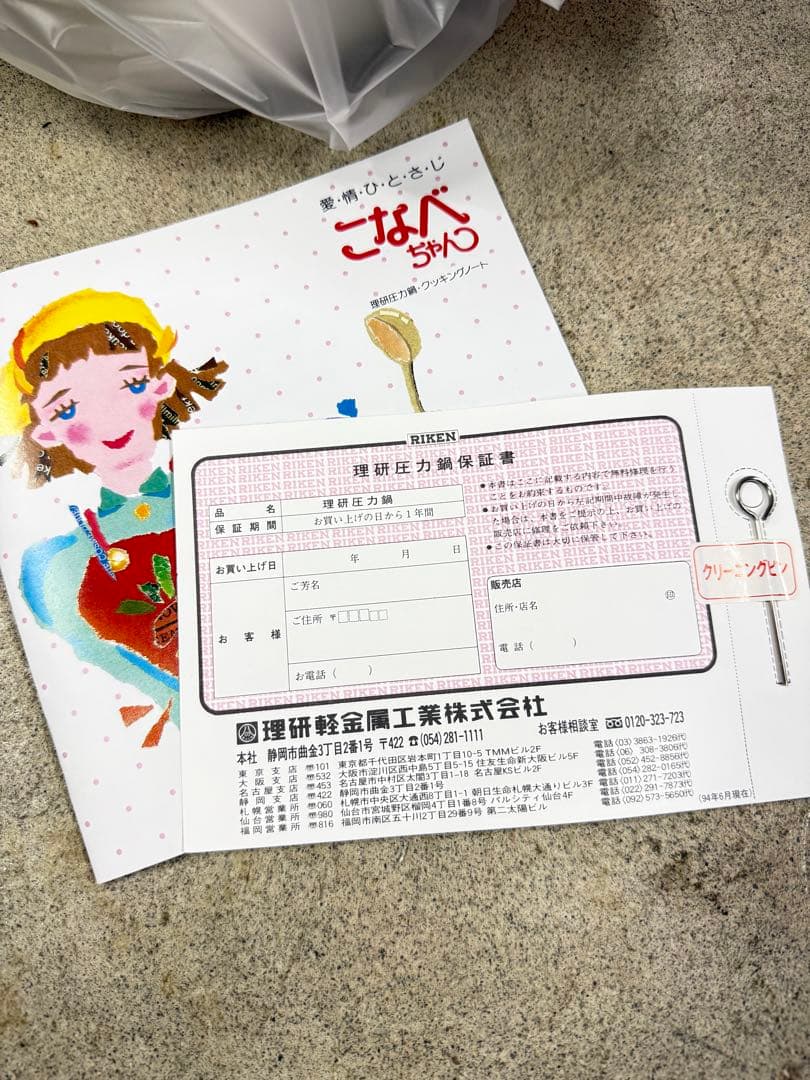 愛・情・ひ・と・さ・じ
こなべ
ちゃん
理研圧力鍋・クッキングノート
RIKEN
理研圧力鍋保証書
品名 理研圧力鍋
保証期間 お買い上げの日から1年間
お買い上げ日 年 月 日
お客様
ご芳名
ご住所 〒
お電話( )
●本書はここに記載する内容で無料修理を行うことをお約束するものです。
●お買い上げの日から左記期間中故障が発生した場合は、本書をご提示の上、お買い上げの販売店に修理をご依頼下さい。
●この保証書は大切に保管して下さい。
販売店
住所・店名
印
電話( )
クリーニングピン
理研軽金属工業株式会社
本社 静岡市曲金3丁目2番1号 〒422 ☎(054)281-1111
お客様相談室 0120-323-723
東京支店 〒101 東京都千代田区岩本町1丁目10-5 TMMビル2F 電話(03)3863-1926代
大阪支店 〒532 大阪市淀川区西中島5丁目5-15 住友生命新大阪ビル5F 電話(06) 308-3806代
名古屋支店 〒453 名古屋市中村区太閤3丁目1-18 名古屋KSビル2F 電話(052)452-8856代
静岡支店 〒422 静岡市曲金3丁目2番1号 電話(054)282-0165代
札幌営業所 〒060 札幌市中央区大通西8丁目1-1 朝日生命札幌大通りビル3F 電話(011)271-7203代
仙台営業所 〒980 仙台市宮城野区榴岡4丁目1番8号 パルシティ仙台4F 電話(022)291-7873代
福岡営業所 〒816 福岡市南区五十川2丁目29番9号 第二太陽ビル 電話(092)573-5650代
(94年6月現在)